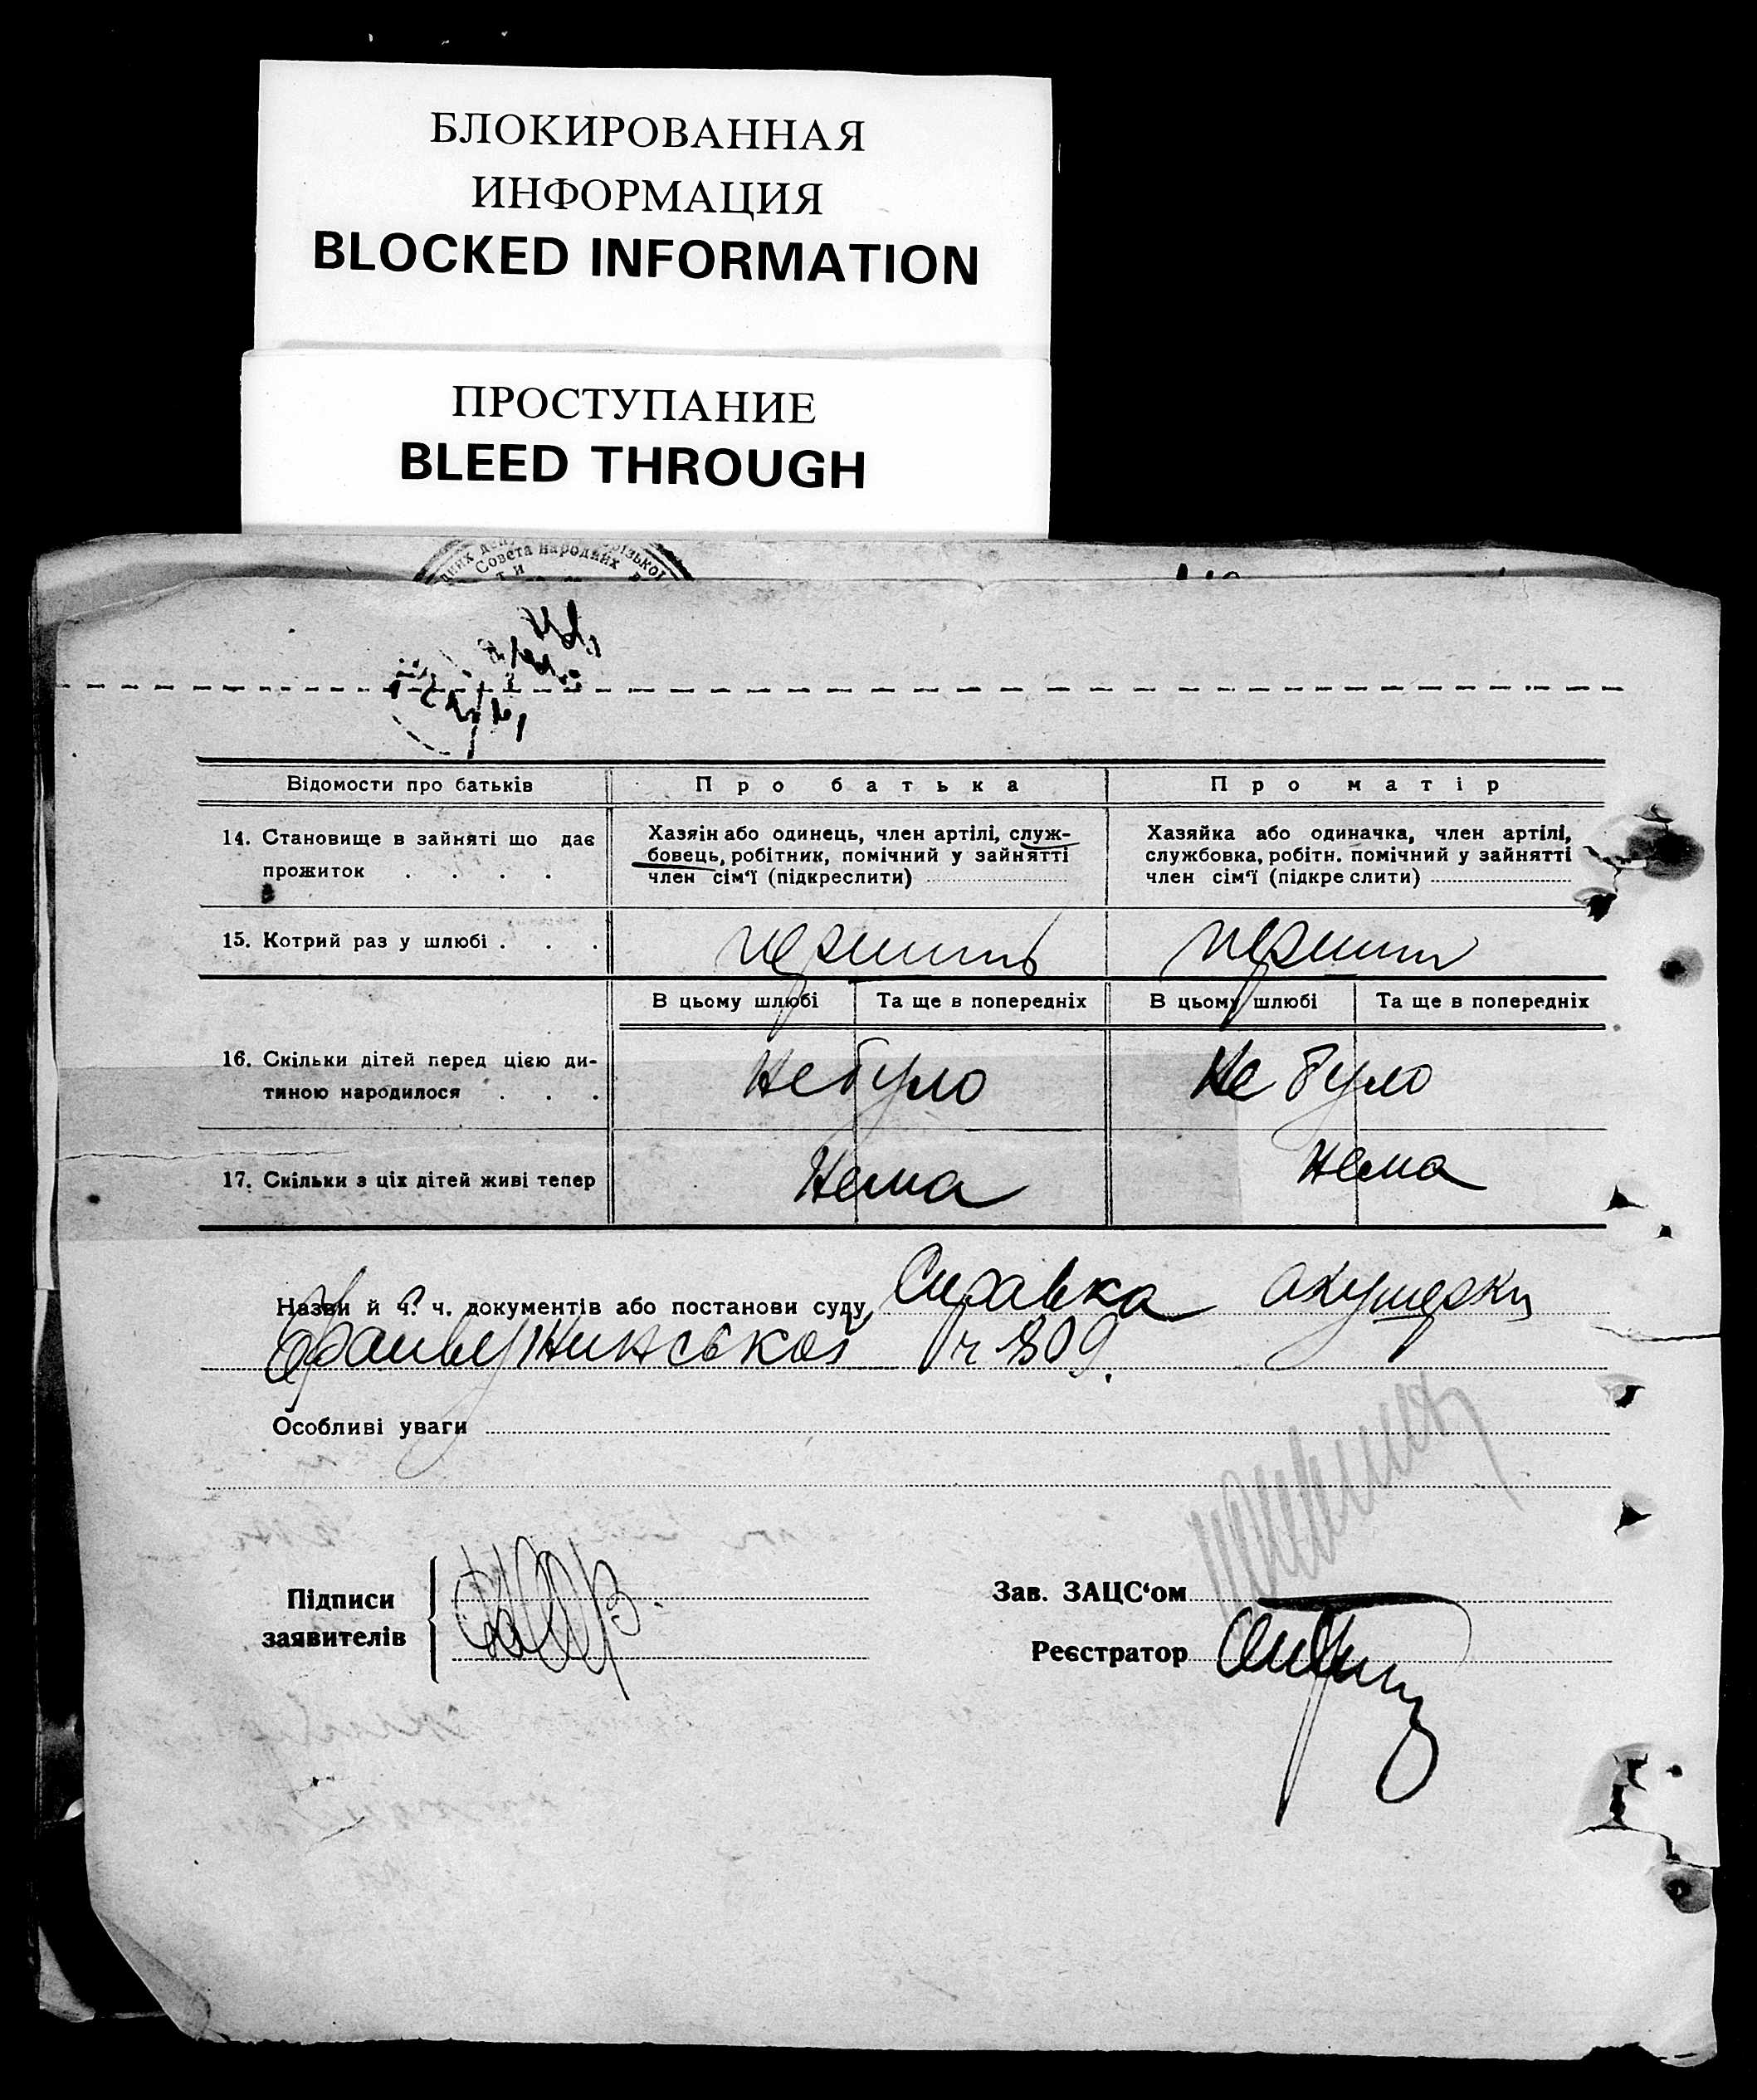 БЛОКИРОВАННАЯ
ИНФОРМАЦИЯ
BLOCKED INFORMATION
ПРОСТУПАНИЕ
BLEED THROUGH
Совета народних
Відомости про батьків
Про батька
Про матір
14. Становище в зайняті що дає
прожиток . . . .
Хазяін або одинець, член артілі, служ-
бовець, робітник, помічний у зайнятті
член сім'ї (підкреслити)
Хазяйка або одиначка, член артілі,
службовка, робітн. помічний у зайнятті
член сім'ї (підкреслити)
15. Котрий раз у шлюбі . . .
перший
перший
В цьому шлюбі
Та ще в попередніх
В цьому шлюбі
Та ще в попередніх
16. Скільки дітей перед цією ди-
тиною народилося . . .
Не було
Не було
17. Скільки з ціх дітей живі тепер
Нема
Нема
Назви й ч. ч. документів або постанови суду Справка акушерки
Особливі уваги
Підписи
заявителів
Зав. ЗАЦС'ом
Реєстратор